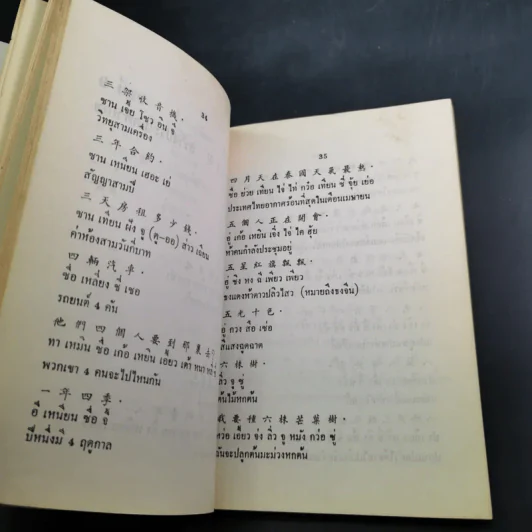 34
三架收音機.
ซาน เซี่ย โซว อิน จี
วิทยุสามเครื่อง
三年合約.
ซาน เหนียน เฮอะ เย่
สัญญาสามปี
三天房租多少錢
ซาน เทียน ฝัง จู (ตู-ออ) ส่าว เฉียน
ค่าห้องสามวันกี่บาท
四輛汽車.
ซื่อ เหลี่ยง ชี่ เชอ
รถยนต์ 4 คัน
他們四個人要到那裏去
ทา เหมิน ซื่อ เก้อ เหยิน เอี้ยว เต้า
พวกเขา 4 คนจะไปไหนกัน
一年四季.
อี่ เหนียน ซื่อ จี้
ปีหนึ่งมี 4 ฤดูกาล
35
四月天在泰國天氣最熱.
ซื่อ ย่วย เทียน ไจ้ ไท่ กว๋อ เทียน ชี่ จุ้ย เย่อ
ประเทศไทยอากาศร้อนที่สุดในเดือนเมษายน
五個人正在開會.
อู่ เก้อ เหยิน เจิ้ง ไจ้ ไค ฮุ้ย
ห้าคนกำลังประชุมอยู่
五星紅旗飄飄.
อู่ ซิง หง ฉี เพียว เพียว
ธงแดงห้าดาวปลิวไสว (หมายถึงธงจีน)
五光十色.
อู่ กวง สือ เซ่อ
สีแสงฉูดฉาด
六株樹.
ลิ่ว จู ซู่
ต้นไม้หกต้น
我要種六株芒菓樹.
หว่อ เอี้ยว จ้ง ลิ่ว จู หมัง กว่อ ซู่
ฉันจะปลูกต้นมะม่วงหกต้น